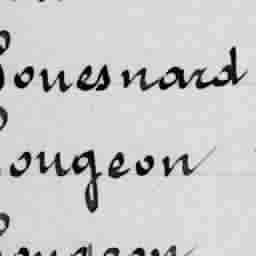 Gouesnard
Gougeon